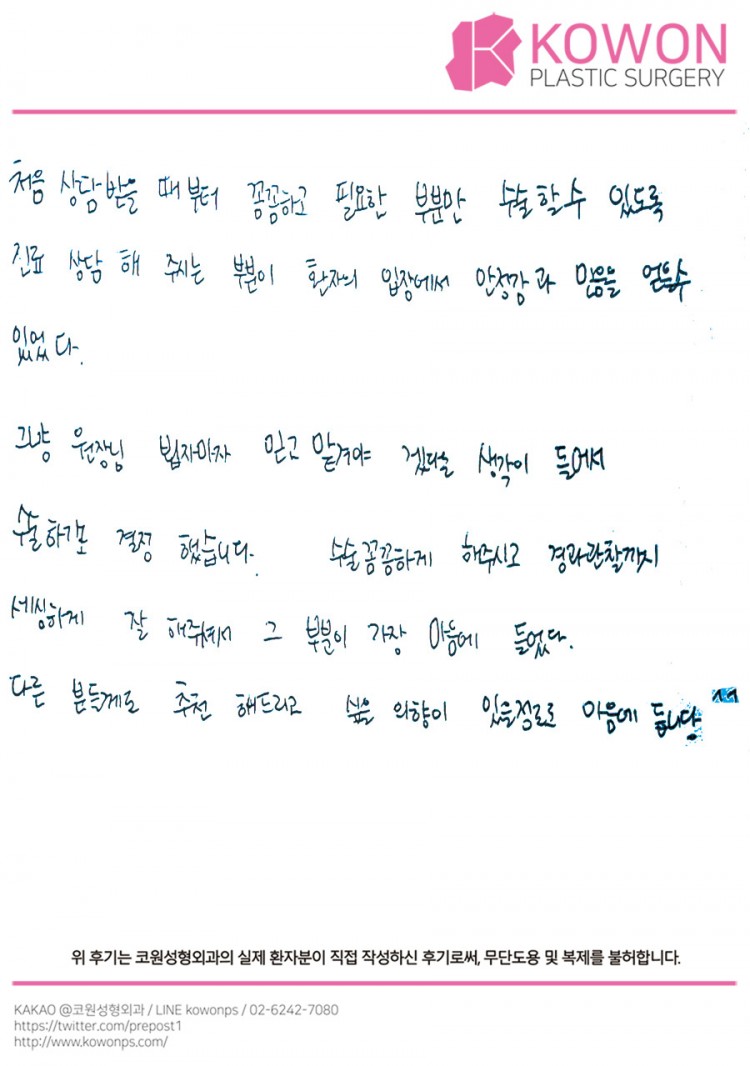 KOWON
PLASTIC SURGERY
처음 상담받을 때부터 꼼꼼하고 필요한 부분만 수술할수 있도록
진료 상담 해 주시는 부분이 환자의 입장에서 안정감과 믿음을 얻을수
있었다.
그냥 원장님 보자마자 믿고 맡겨야 겠다는 생각이 들어서
수술하기로 결정 했습니다. 수술꼼꼼하게 해주시고 경과관찰까지
세심하게 잘 해줘서 그 부분이 가장 마음에 들었다.
다른 분들께도 추천 해드리고 싶을 의향이 있을정도로 마음에 듭니다 ^^
위 후기는 코원성형외과의 실제 환자분이 직접 작성하신 후기로써, 무단도용 및 복제를 불허합니다.
KAKAO @코원성형외과 / LINE kowonps / 02-6242-7080
https://twitter.com/prepost1
http://www.kowonps.com/